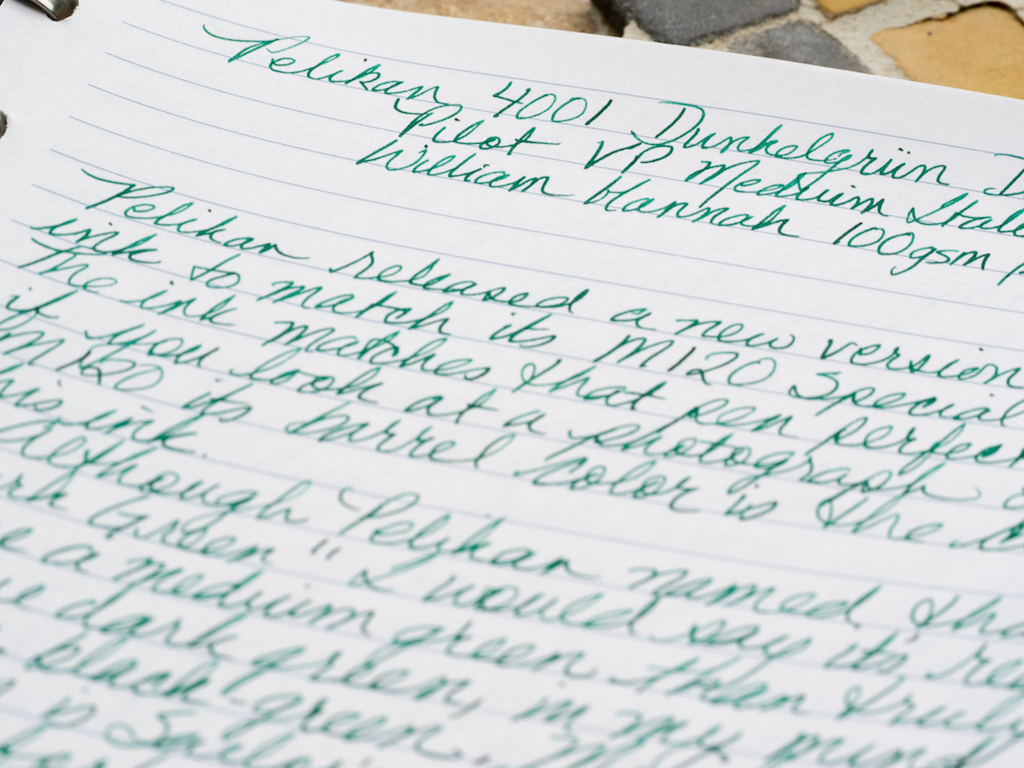 Pelikan 4001 Dunkelgrün D
Pilot VP Medium Ital
William Hannah 100gsm p
Pelikan released a new version
ink to match its M120 Special
The ink matches that pen perfect
if you look at a photograph
M120 its barrel color is the
this ink.
Although Pelikan named th
Green" I would say its re
a medium green than truly
dark green, in my mind
black green.